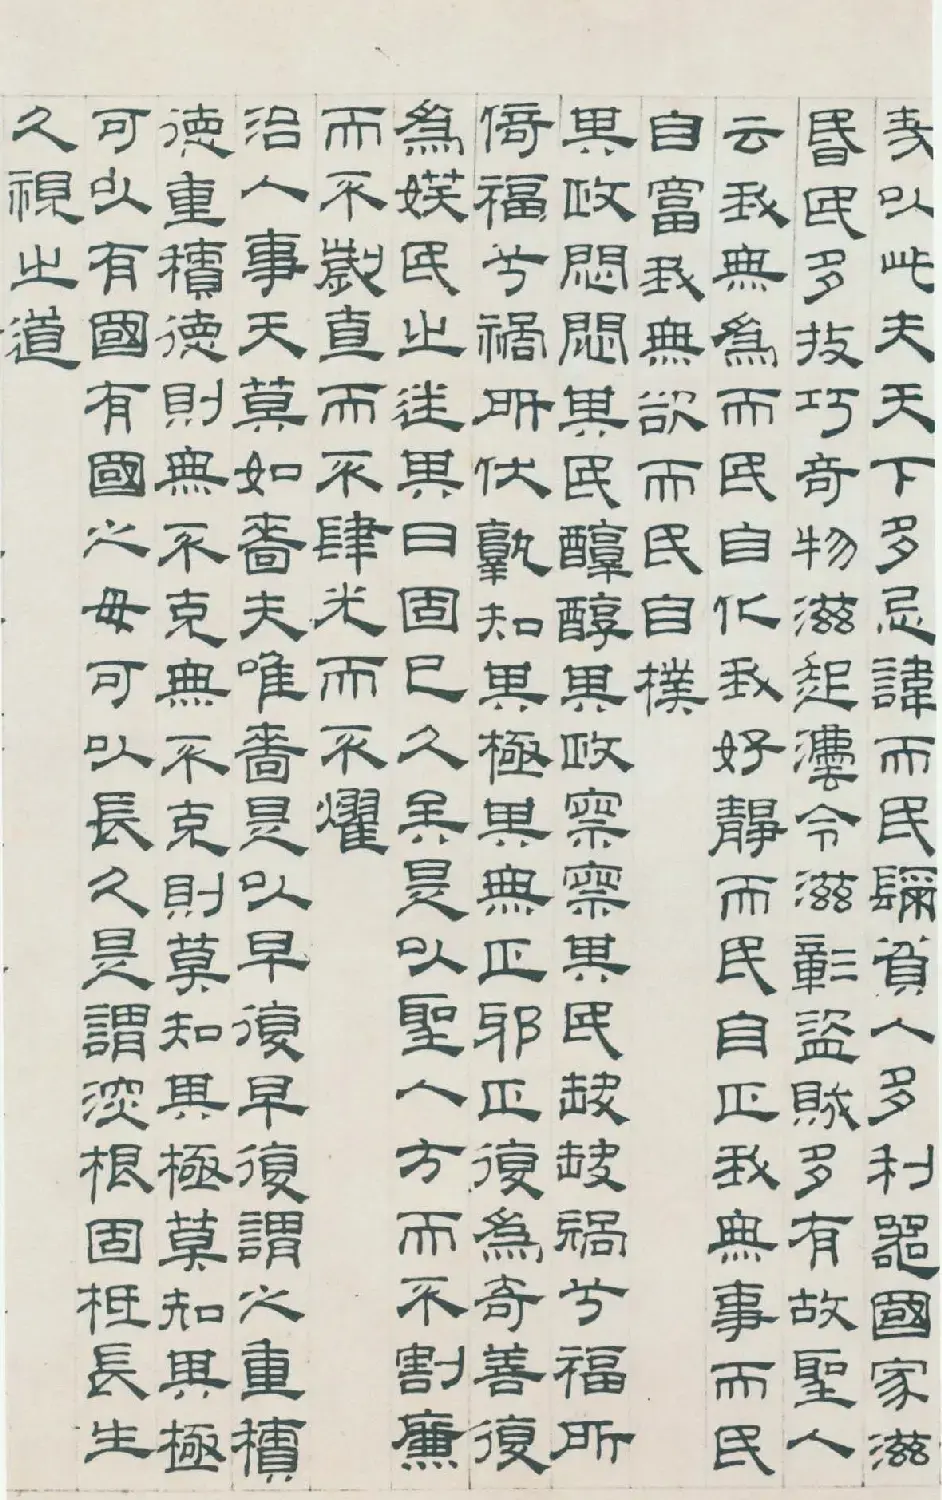 哉以此夫天下多忌諱而民彌貧人多利器國家滋
昏民多技巧奇物滋起灋令滋彰盜賊多有故聖人
云我無為而民自化我好靜而民自正我無事而民
自富我無欲而民自樸
其政悶悶其民醇醇其政察察其民缺缺禍兮福所
倚福兮禍所伏孰知其極其無正邪正復為奇善復
為妖民之迷其日固已久矣是以聖人方而不割廉
而不劌直而不肆光而不燿
治人事天莫如嗇夫唯嗇是以早復早復謂之重積
德重積德則無不克無不克則莫知其極莫知其極
可以有國有國之母可以長久是謂深根固柢長生
久視之道